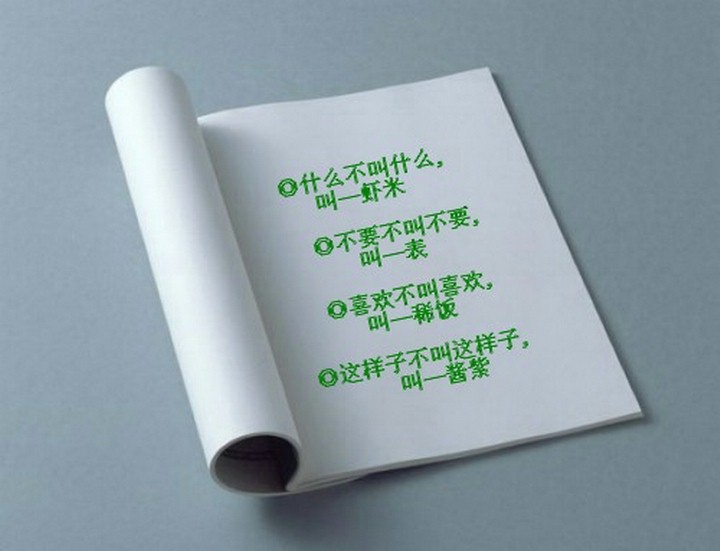 ◎什么不叫什么，
叫—虾米
◎不要不叫不要，
叫—表
◎喜欢不叫喜欢，
叫—稀饭
◎这样子不叫这样子，
叫—酱紫